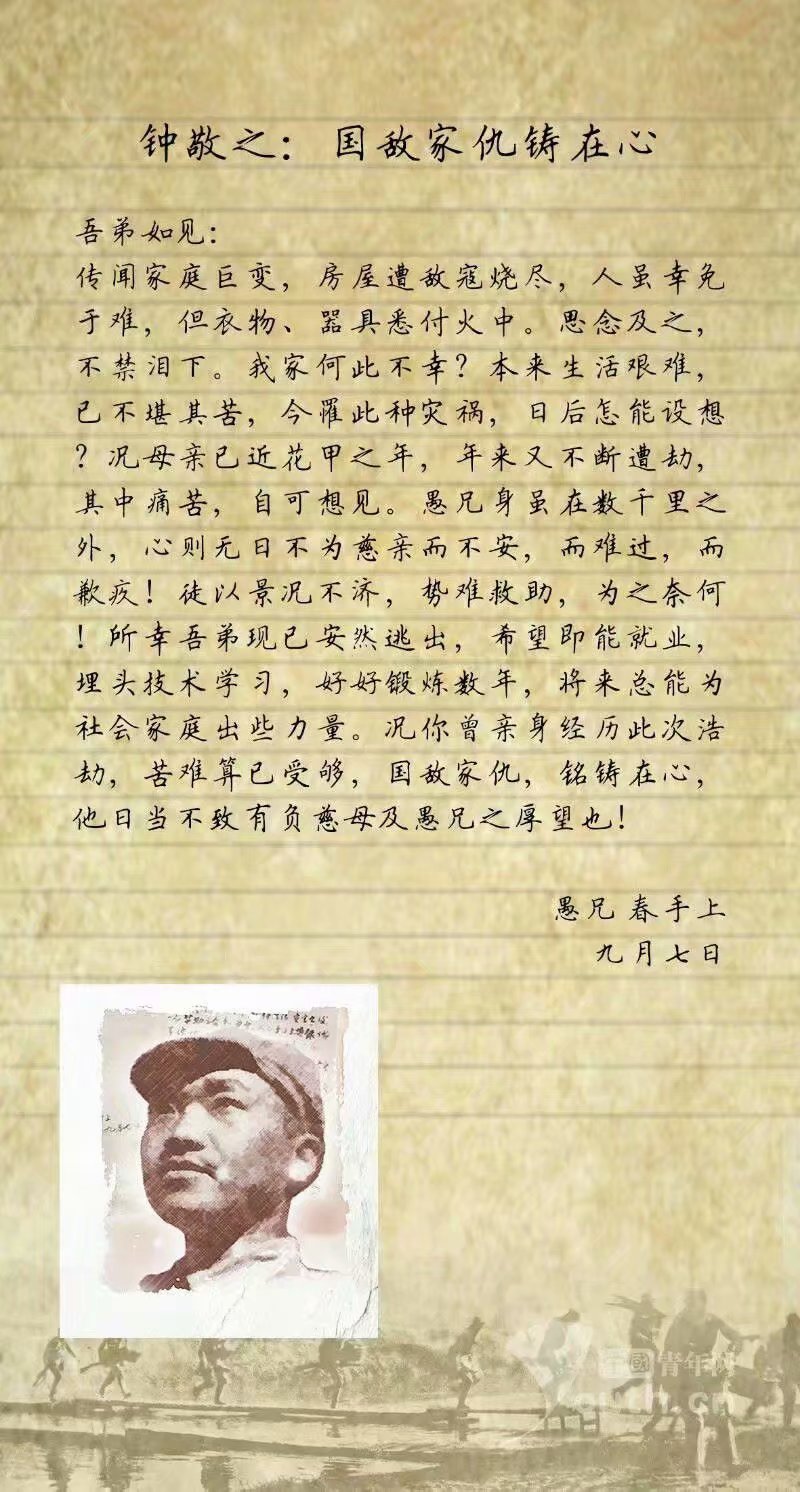 钟敬之：国敌家仇铸在心
吾弟如见：
传闻家庭巨变，房屋遭敌寇烧尽，人虽幸免
于难，但衣物、器具悉付火中。思念及之，
不禁泪下。我家何此不幸？本来生活艰难，
已不堪其苦，今罹此种灾祸，日后怎能设想
？况母亲已近花甲之年，年来又不断遭劫，
其中痛苦，自可想见。愚兄身虽在数千里之
外，心则无日不为慈亲而不安，而难过，而
歉疚！徒以景况不济，势难救助，为之奈何
！所幸吾弟现已安然逃出，希望即能就业，
埋头技术学习，好好锻炼数年，将来总能为
社会家庭出些力量。况你曾亲身经历此次浩
劫，苦难算已受够，国敌家仇，铭铸在心，
他日当不致有负慈母及愚兄之厚望也！
愚兄 春手上
九月七日
中國青年网